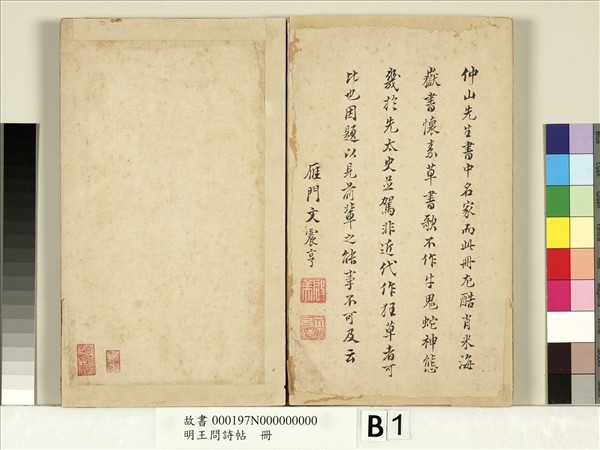 仲山先生書中名家而此冊尤酷肖米海
嶽書懷素草書歌不作牛鬼蛇神態
幾於先太史並駕非近代作狂草者可
比也因題以見前輩之能事不可及云
雁門文震亨
故書 000197N000000000
明王問詩帖 冊
B 1